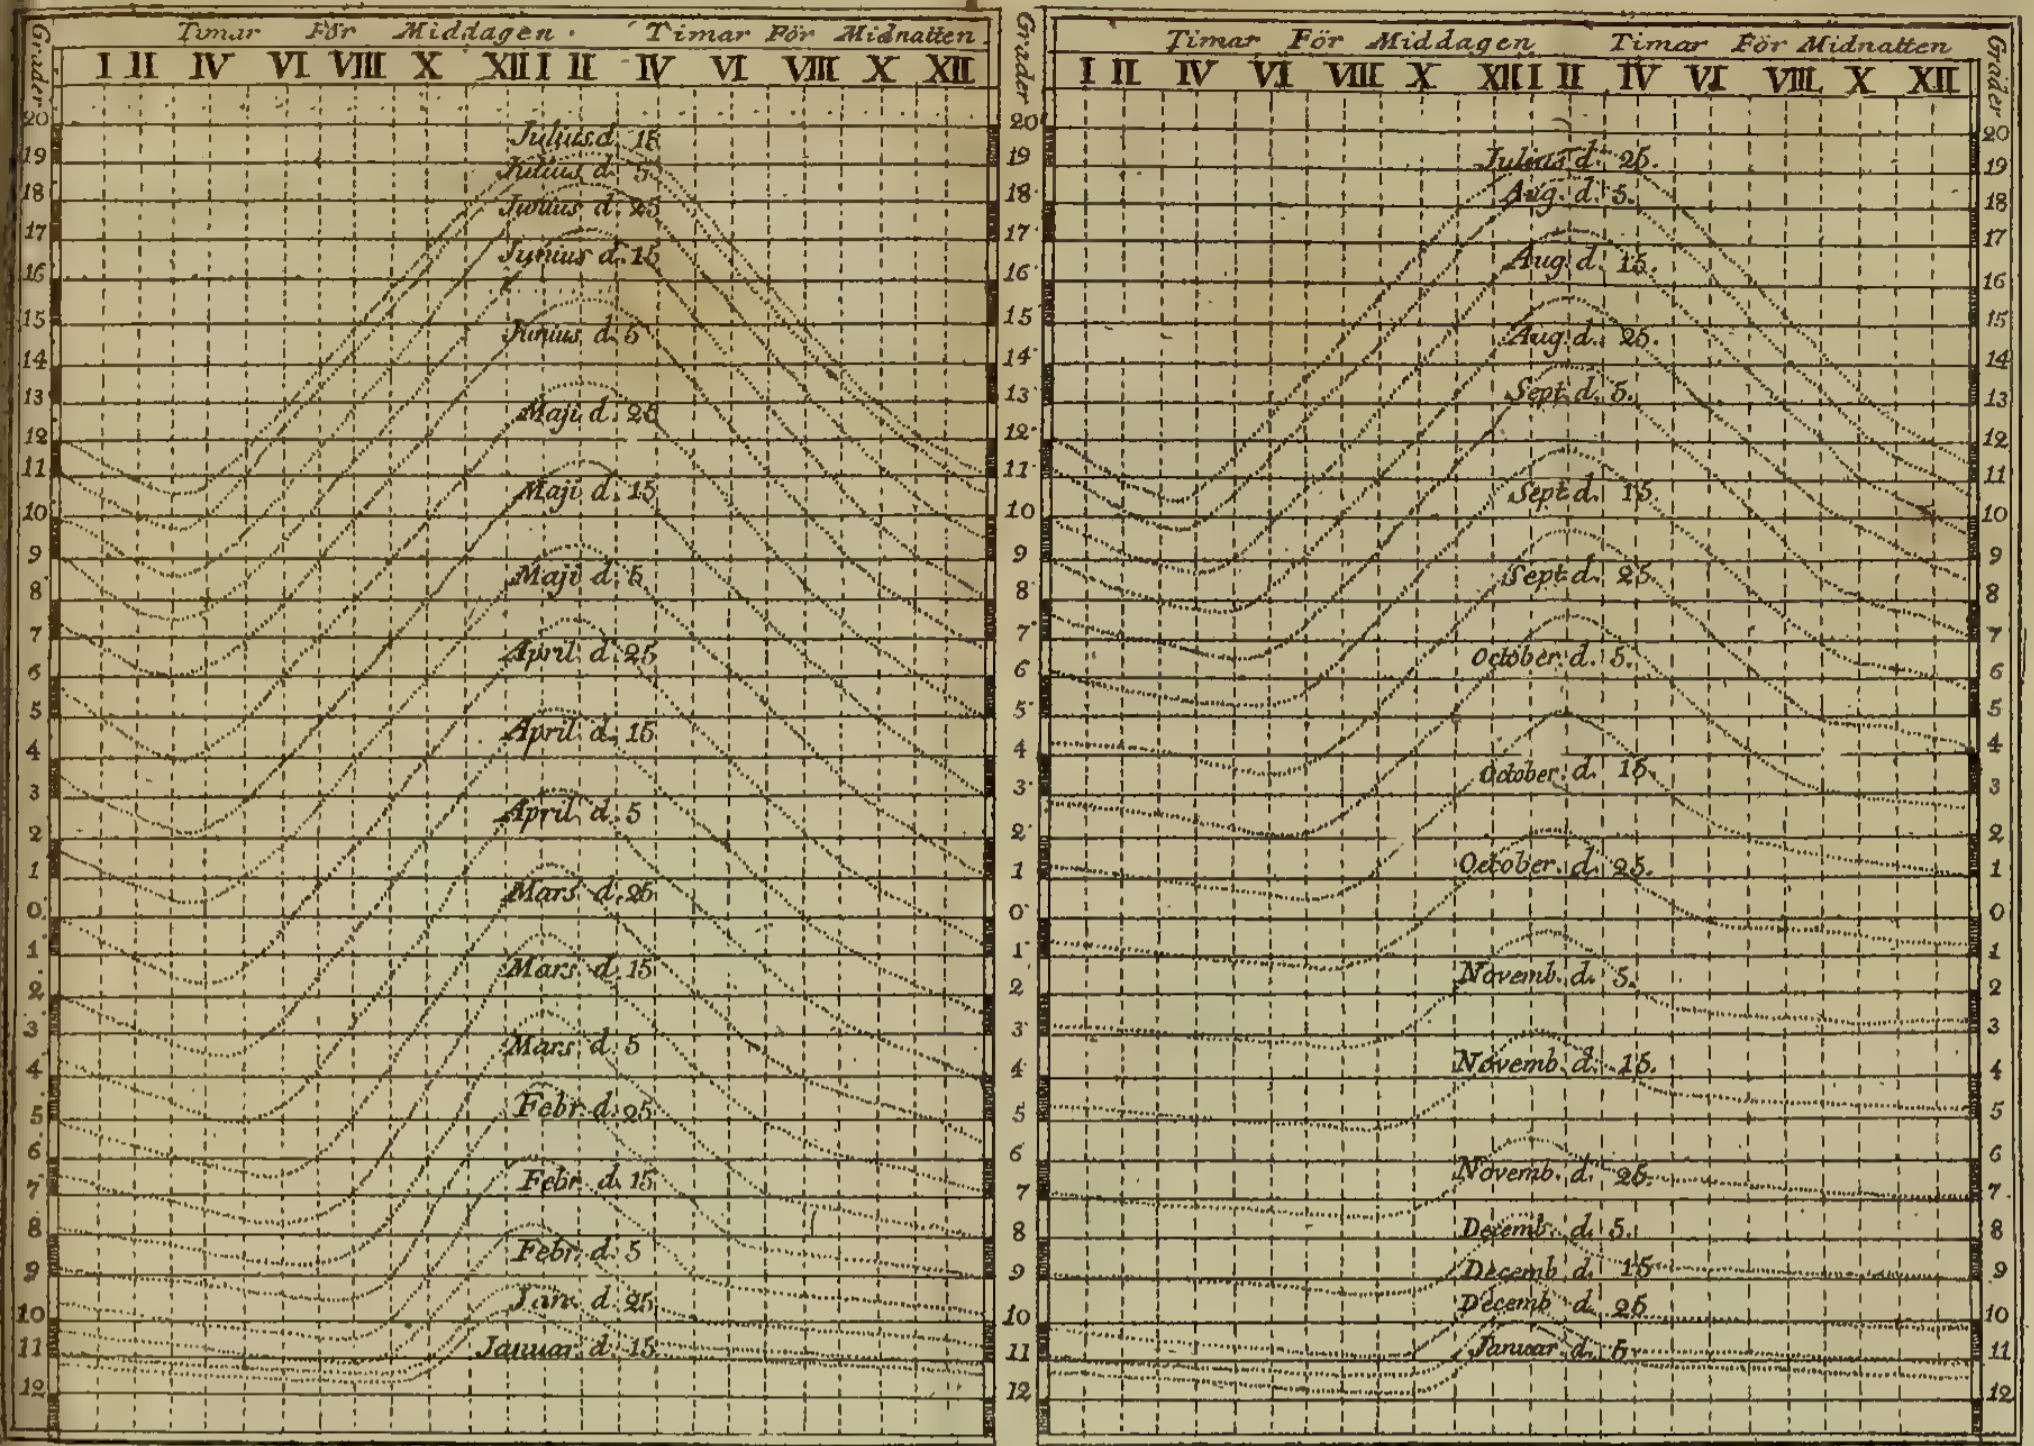 Timar För Middagen. Timar För Midnatten.
Grader
I II IV VI VIII X XII I II IV VI VIII X XII
Grader
20
19
18
17
16
15
14
13
12
11
10
9
8
7
6
5
4
3
2
1
0
1
2
3
4
5
6
7
8
9
10
11
12
Julius d. 15
Julius d. 5
Junius d. 25
Junius d. 15
Junius d. 5
Maji d. 25
Maji d. 15
Maji d. 5
April d. 25
April d. 15
April d. 5
Mars d. 25
Mars d. 15
Mars d. 5
Febr. d. 25
Febr. d. 15
Febr. d. 5
Jan. d. 25
Januar. d. 15
20
19
18
17
16
15
14
13
12
11
10
9
8
7
6
5
4
3
2
1
0
1
2
3
4
5
6
7
8
9
10
11
12
Timar För Middagen Timar För Midnatten
I II IV VI VIII X XII I II IV VI VIII X XII
Grader
Julius d. 25.
Aug. d. 5.
Aug. d. 15.
Aug. d. 25.
Sept. d. 5.
Sept. d. 15
Sept. d. 25
October. d. 5.
October. d. 15.
October. d. 25.
Novemb. d. 5.
Novemb. d. 15.
Novemb. d. 25.
Decemb. d. 5.
Decemb. d. 15
Decemb d. 25
Januar d. 5.
20
19
18
17
16
15
14
13
12
11
10
9
8
7
6
5
4
3
2
1
0
1
2
3
4
5
6
7
8
9
10
11
12